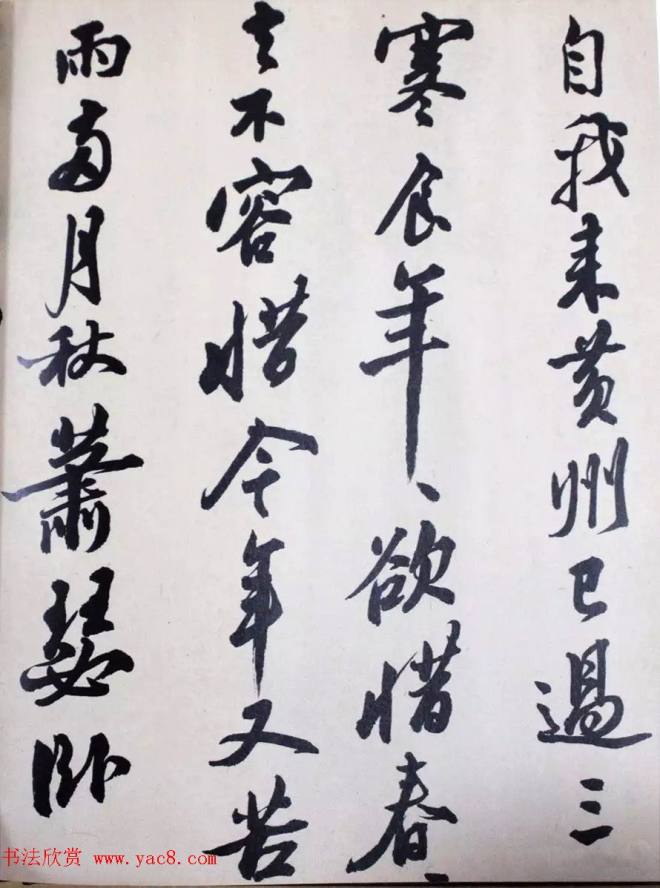 自我来黄州已過三
寒食年、欲惜春、
去不容惜今年又苦
雨兩月秋蕭瑟卧
书法欣赏 www.yac8.com